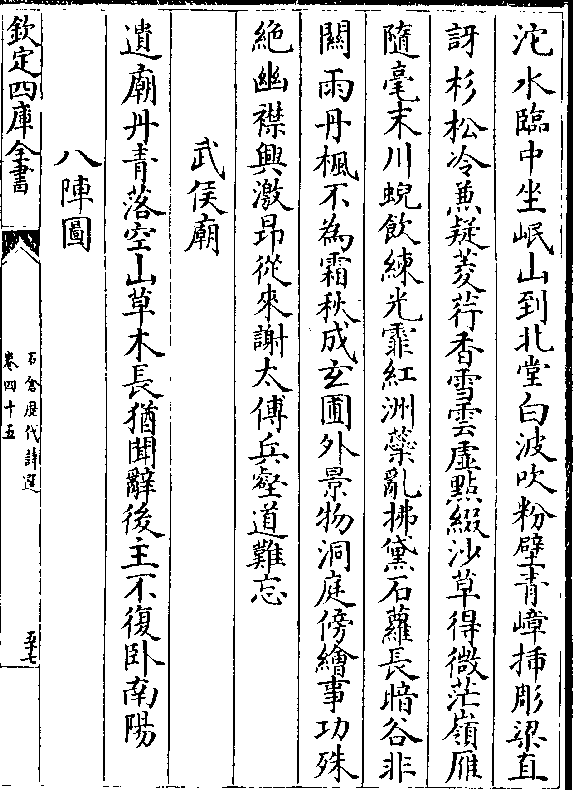 沱水臨中坐岷山到北堂白波吹粉壁青嶂揷彫梁直
訝杉松冷兼疑菱荇香雪雲虚㸃綴沙草得微茫嶺雁
隨毫末川蜺飲練光霏紅洲蘂亂拂黛石蘿長暗谷非
闗雨丹楓不為霜秋成玄圃外景物洞庭傍繪事功殊
絶幽襟興激昂從來謝太傅丘壑道難忘
武侯廟
遺廟丹青落空山草木長猶聞辭後主不復卧南陽
八陣圖
欽定四庫全書
石倉歴代詩選
卷四十五
五十七